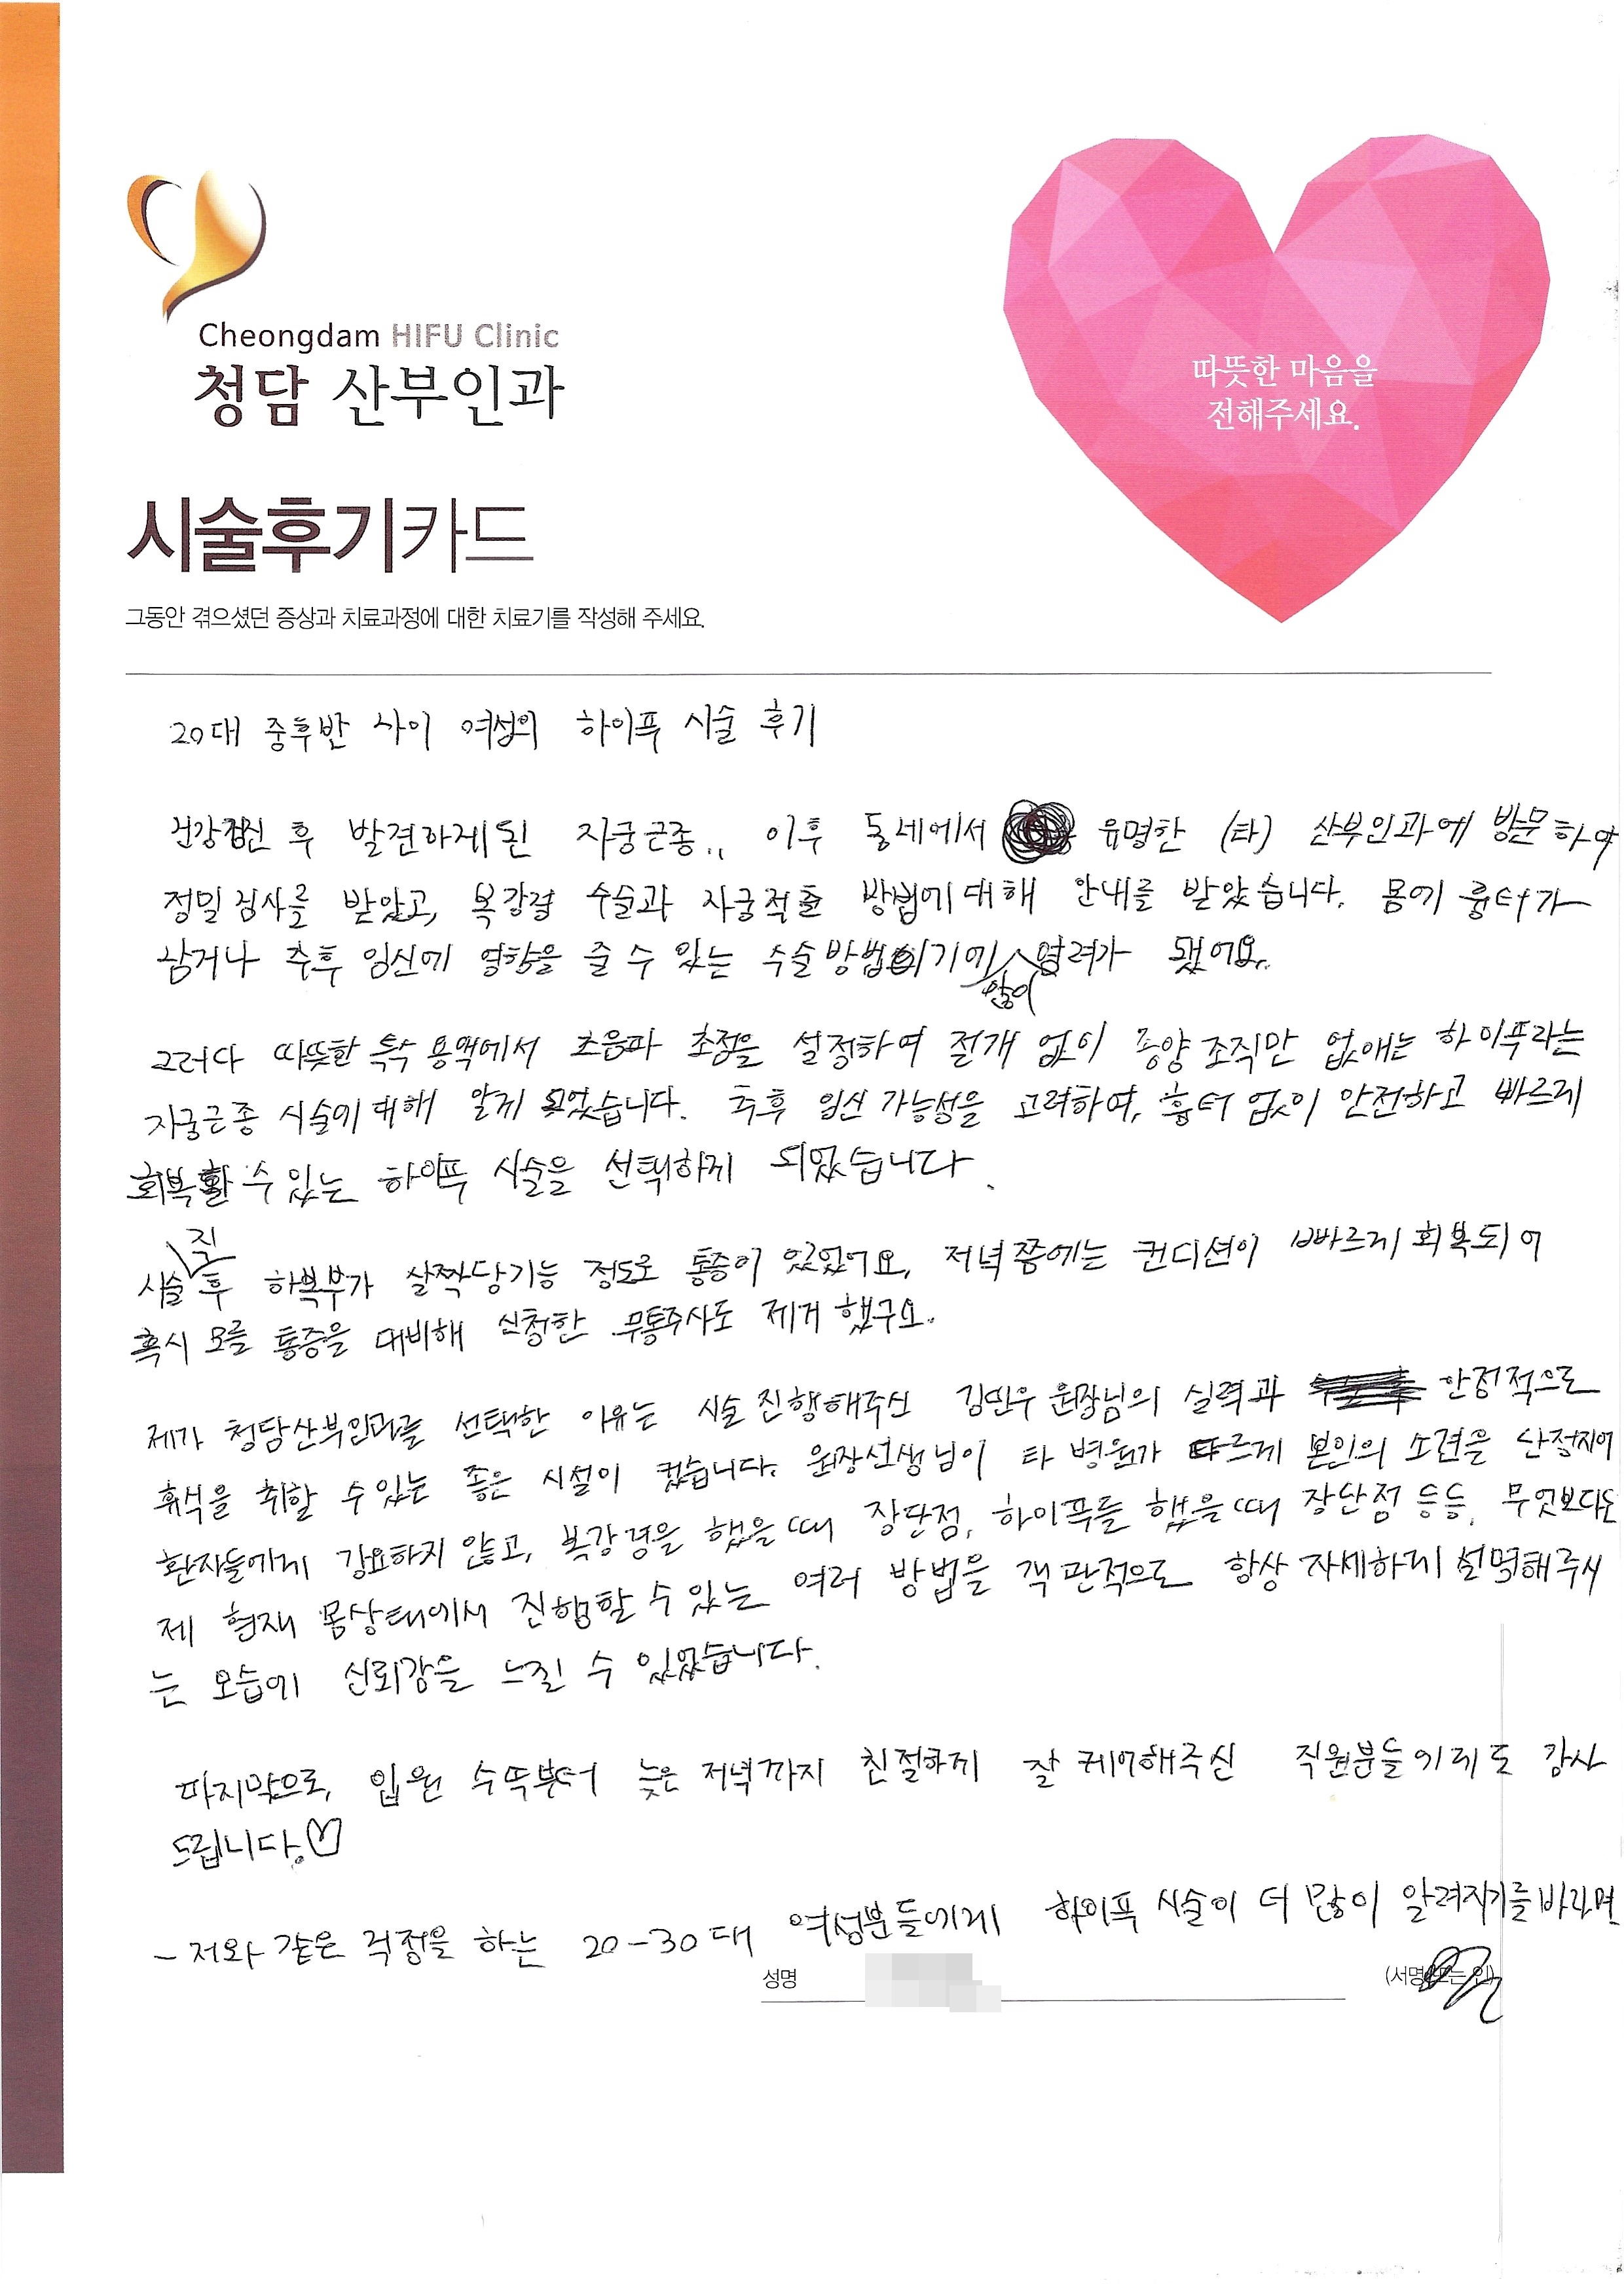 Cheongdam HIFU Clinic
청담 산부인과
따뜻한 마음을
전해주세요.
시술후기카드
그동안 겪으셨던 증상과 치료과정에 대한 치료기를 작성해 주세요.
20대 중후반 사이 여성의 하이푸 시술 후기
건강검진 후 발견하게된 자궁근종.. 이후 동네에서 유명한 (타) 산부인과에 방문하여
정밀검사를 받았고, 복강경 수술과 자궁적출 방법에대해 안내를 받았습니다. 몸에 흉터가
남거나 추후 임신에 영향을 줄 수 있는 수술방법이기에 많이 염려가 됐어요.
그러다 따뜻한 특수 용액에서 초음파 초점을 설정하여 절개 없이 종양조직만 없애는 하이푸라는
자궁근종 시술에대해 알게 되었습니다. 추후 임신 가능성을 고려하여, 흉터 없이 안전하고 빠르게
회복할 수 있는 하이푸 시술을 선택하게 되었습니다.
시술 직후 하복부가 살짝당기능 정도로 통증이 있었어요, 저녁쯤에는 컨디션이 빠르게 회복되어
혹시 모를 통증을 대비해 신청한 무통주사도 제거 했구요.
제가 청담산부인과를 선택한 이유는 시술 진행해주신 김민우 원장님의 실력과 안정적으로
휴식을 취할 수 있는 좋은 시설이 컸습니다. 원장선생님이 타 병원과 다르게 본인의 소견을 단정지어
환자들에게 강요하지 않고, 복강경을 했을때 장단점, 하이푸를 했을때 장단점 등등, 무엇보다도
제 현재 몸상태에서 진행할 수 있는 여러 방법을 객관적으로 항상 자세하게 설명해주시
는 모습에 신뢰감을 느낄 수 있었습니다.
마지막으로, 입원 수속부터 늦은 저녁까지 친절하게 잘 케어해주신 직원분들에게도 감사
드립니다.♡
- 저와 같은 걱정을 하는 20-30대 여성분들에게 하이푸 시술이 더 많이 알려지기를바라며
성명 (서명 또는 인)